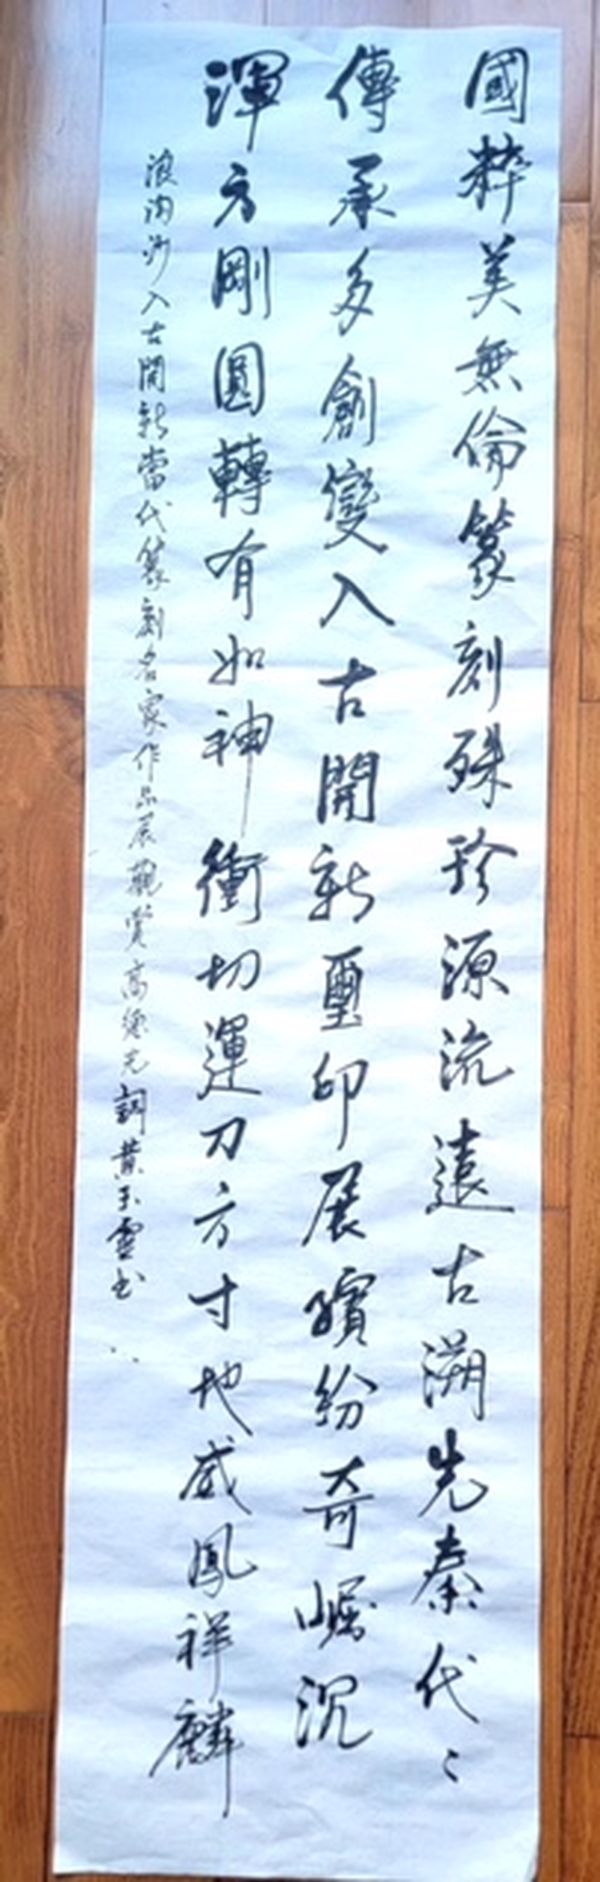 國粹美無倫篆刻殊珍源流遠古溯先秦代〻
傳承多創變入古開新璽印展繽紛奇崛沉
渾方剛圓轉有如神衝切運刀方寸地威鳳祥麟
浪淘沙入古開新當代篆刻名家作品展觀賞高德光詞黃玉雲书